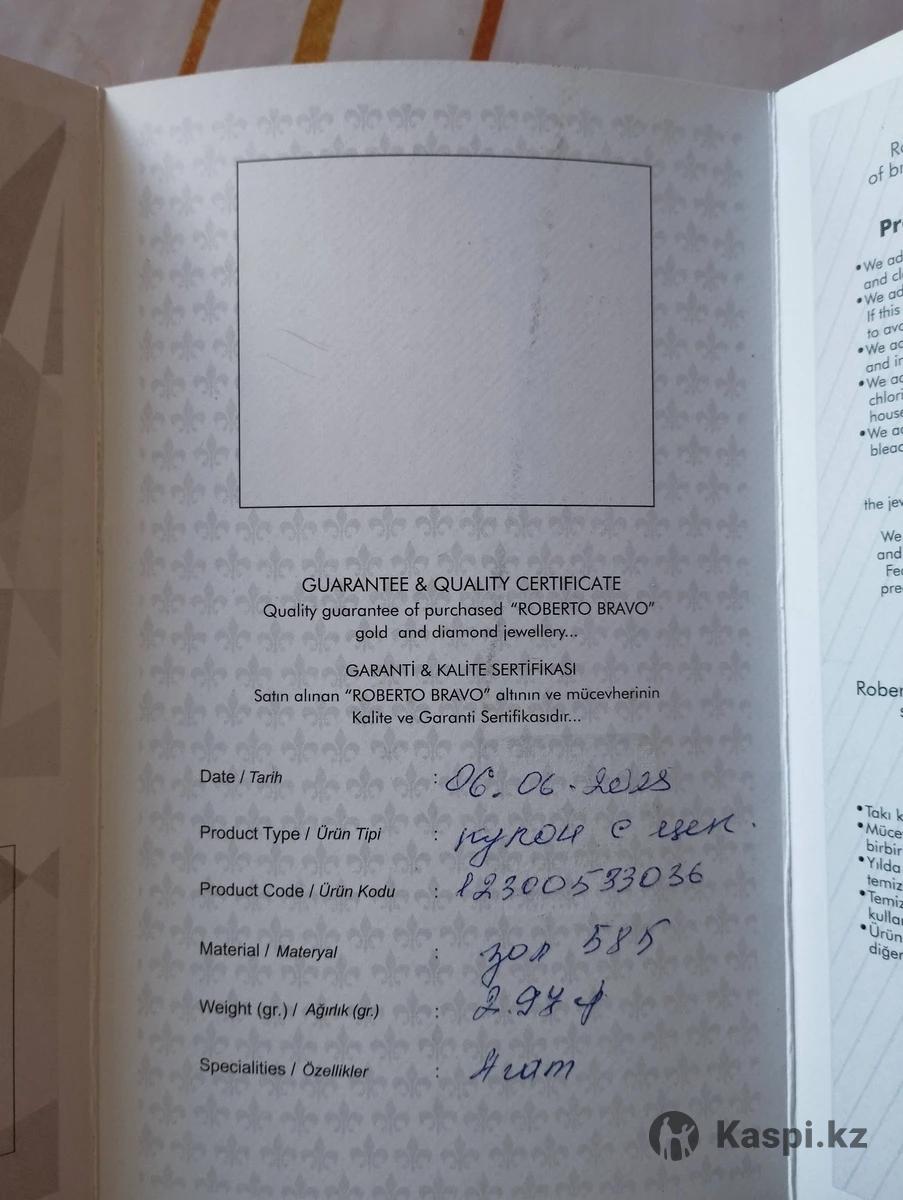 GUARANTEE & QUALITY CERTIFICATE
Quality guarantee of purchased "ROBERTO BRAVO"
gold and diamond jewellery...
GARANTİ & KALİTE SERTİFİKASI
Satın alınan "ROBERTO BRAVO" altının ve mücevherinin
Kalite ve Garanti Sertifikasıdır...
Date / Tarih : 06.06.2025
Product Type / Ürün Tipi : кулон с цеп.
Product Code / Ürün Kodu : 12300533036
Material / Materyal : зол 585
Weight (gr.) / Ağırlık (gr.) :
Specialities / Özellikler : Агат
of
Pr
•We ad
and cl
•We ad
If this
to avo
•We ad
and in
•We ad
chlori
house
•We ad
bleac
the jew
We
and
Fea
pre
Rober
s
•Takı k
•Müce
birbir
•Yılda
temiz
•Temiz
kullar
•Ürün
diğer
Kaspi.kz